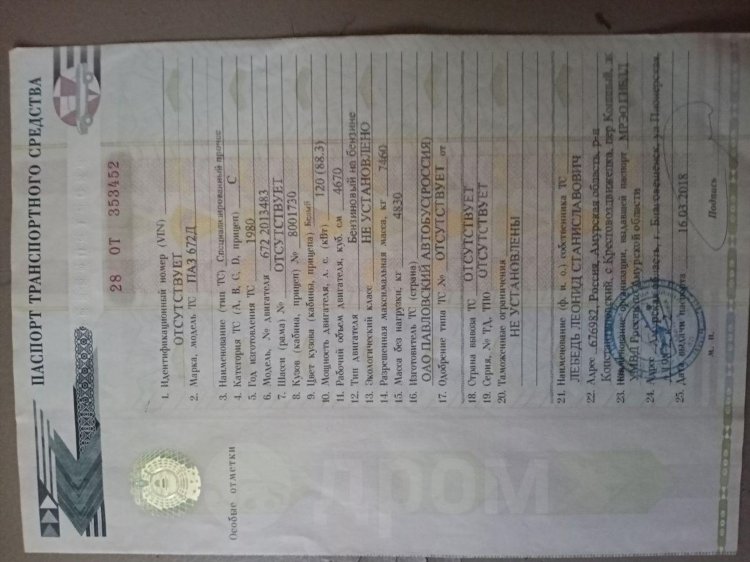 ПАСПОРТ ТРАНСПОРТНОГО СРЕДСТВА
28 ОТ 353452
1. Идентификационный номер (VIN)
ОТСУТСТВУЕТ
2. Марка, модель ТС ПАЗ 672Д
3. Наименование (тип ТС) Специализированный прочее
4. Категория ТС (А, В, С, D, прицеп) С
5. Год изготовления ТС 1980
6. Модель, № двигателя 672 2013483
7. Шасси (рама) № ОТСУТСТВУЕТ
8. Кузов (кабина, прицеп) № 8001730
9. Цвет кузова (кабины, прицепа) Белый
10. Мощность двигателя, л. с. (кВт) 120 (88,3)
11. Рабочий объем двигателя, куб. см 4670
12. Тип двигателя Бензиновый на бензине
13. Экологический класс НЕ УСТАНОВЛЕНО
14. Разрешенная максимальная масса, кг 7460
15. Масса без нагрузки, кг 4830
16. Изготовитель ТС (страна)
ОАО ПАВЛОВСКИЙ АВТОБУС(РОССИЯ)
17. Одобрение типа ТС № ОТСУТСТВУЕТ от
18. Страна вывоза ТС ОТСУТСТВУЕТ
19. Серия, № ТД, ТПО ОТСУТСТВУЕТ
20. Таможенные ограничения
НЕ УСТАНОВЛЕНЫ
21. Наименование (ф. и. о.) собственника ТС
ЛЕБЕДЬ ЛЕОНИД СТАНИСЛАВОВИЧ
22. Адрес 676982, Россия, Амурская область, р-н
Константиновский, с Крестовоздвиженка, пер Конный, д
23. Наименование организации, выдавшей паспорт МРЭО ГИБДД
УМВД России по Амурской области
24. Адрес Амурская область, г Благовещенск, ул Пионерская,
25. Дата выдачи паспорта 16.03.2018
М. П. Подпись
Особые отметки